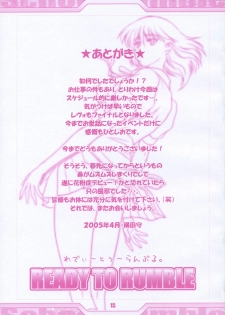 ★あとがき★
如何でしたでしょうか！？
お仕事の件もあり、とりわけ今回は
スケジュール的に厳しかったです…。
気がつけば早いもので
レヴォもファイナルとなりました。
今までお世話になったイベントだけに
感慨もひとしおです。
今までどうもありがとうございました！
そうそう、春先になってからというもの
鼻がムズムズしまくりでして
遂に花粉症デビュー！かと恐れていたら
只の風邪でした…。
皆様もお体には充分に気を付けて下さい。（笑）
それでは、またお会いしましょう。
2005年4月
れでぃーとぅーらんぶる。
READY TO RUMBLE